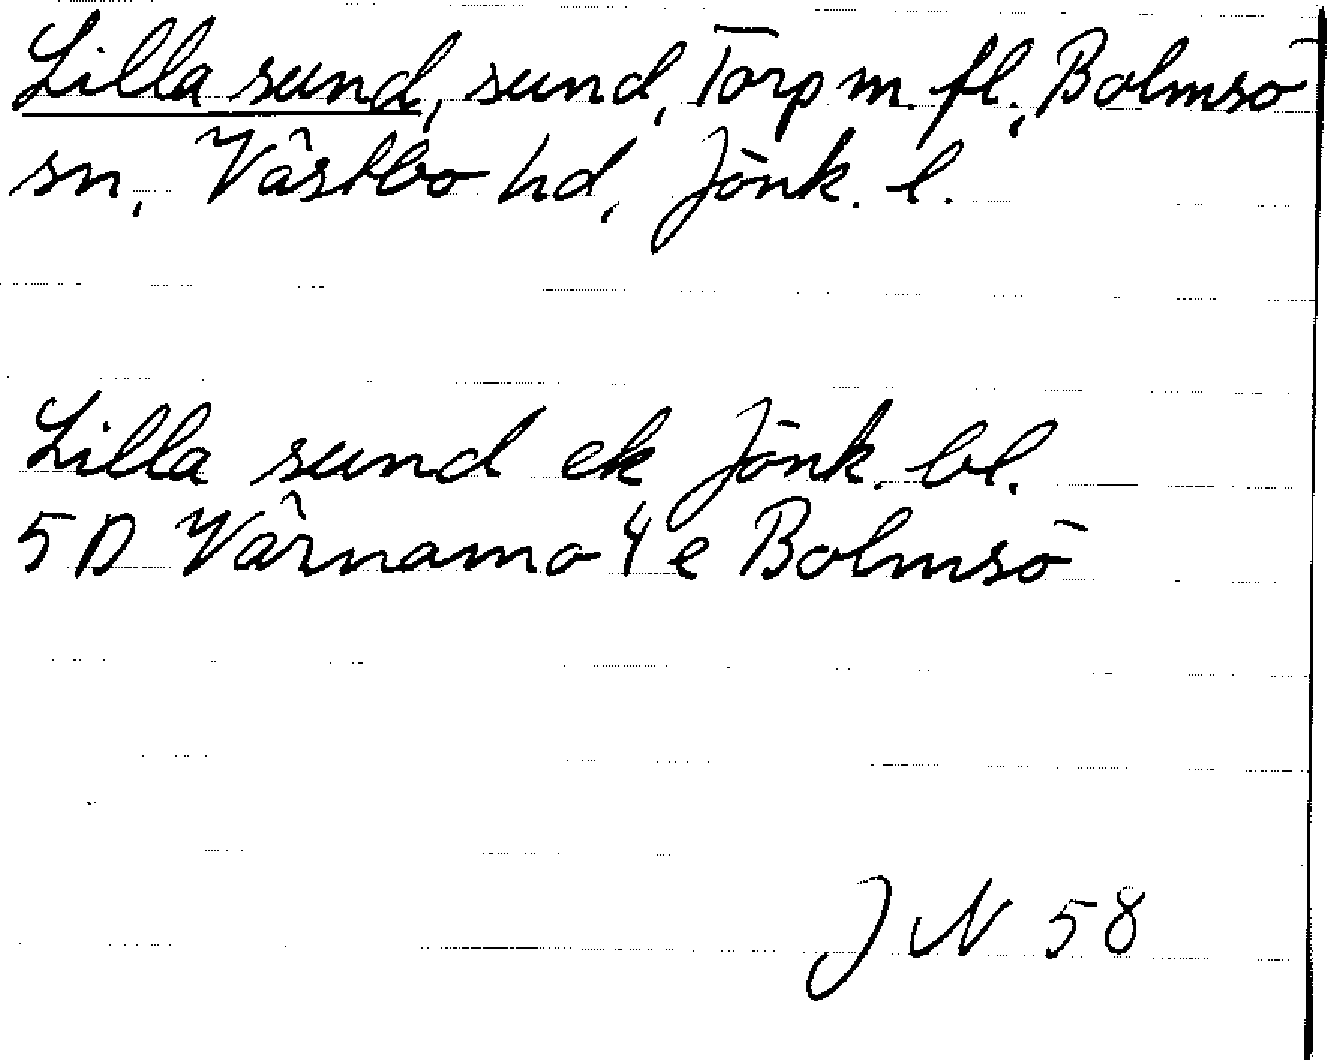 Lilla sund, sund, Torp m. fl., Bolmsö
sn, Västbo hd, Jönk. l.
Lilla sund ek Jönk. bl.
5D Värnamo 4 e Bolmsö
J N 58